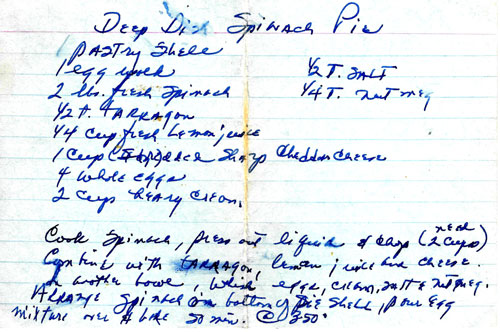 Deep Dish Spinach Pie
Pastry Shell
1 egg yolk
2 lbs. fresh Spinach
1/2 t. TARRAGON
1/4 cup fresh Lemon juice
1 cup Sharp Cheddar Cheese
4 whole eggs
2 cups heavy cream.
1/2 T. SALT
1/4 T. nutmeg
Cook Spinach, press out liquid & chop (need 2 cups)
Combine with TARRAGON, lemon juice and cheese.
In another bowl, whisk eggs, cream, salt & nutmeg.
ARRANGE Spinach on bottom of Pie Shell, pour egg
mixture over & bake 50 min. @ 350°